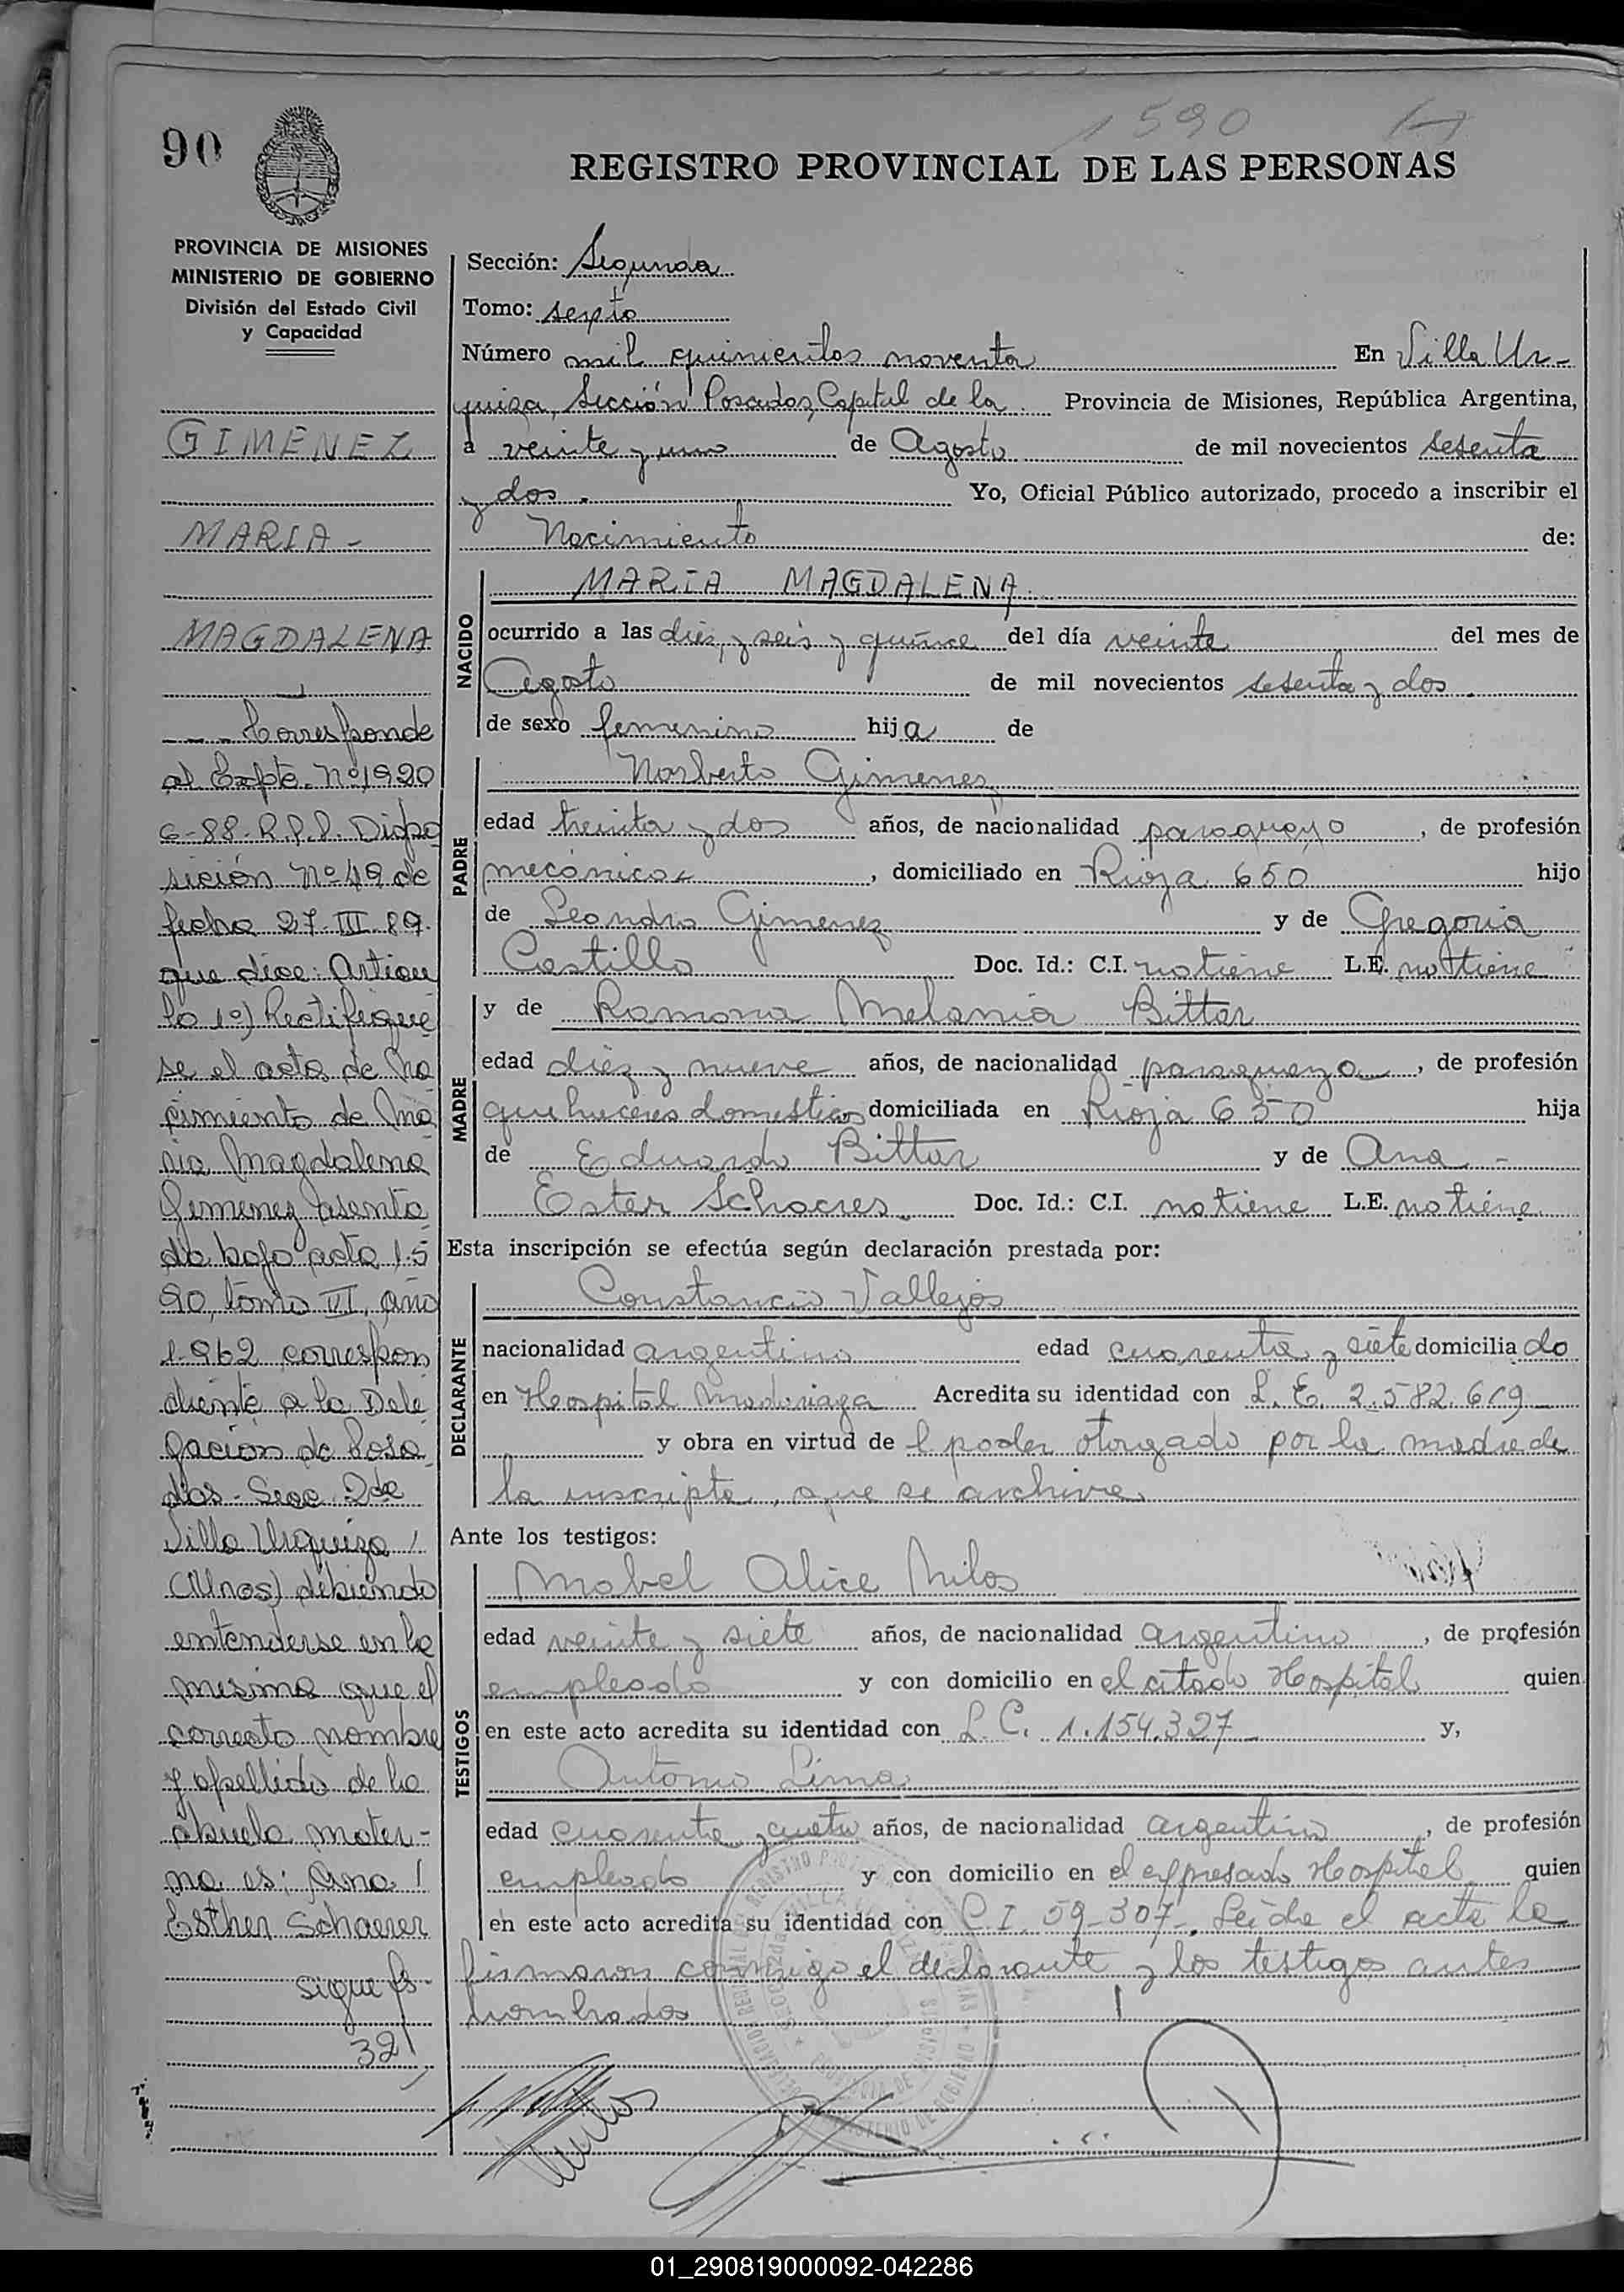 90
1590
REGISTRO PROVINCIAL DE LAS PERSONAS
PROVINCIA DE MISIONES
MINISTERIO DE GOBIERNO
División del Estado Civil
y Capacidad
GIMENEZ
MARIA -
MAGDALENA
--- Corresponde
al Expte. Nº 1920
6-88-R.P.P. Dispo
sición Nº 49 de
fecha 27-III-89.
que dice: Articu
lo 1º) Rectifíque
se el acta de Na
cimiento de Ma
ria Magdalena
Gimenez asenta
da bajo acta 1.5
90, tomo VI, año
1.962 correspon
diente a la Dele
gación de Posa
das - Secc. 2da
Villa Urquiza /
(Mnes) debiendo
entenderse en la
misma que el
correcto nombre
y apellido de la
abuela mater-
na es: Ana /
Esther Schaerer
sigue fs-
321
Sección: Segunda
Tomo: sexto
Número mil quinientos noventa En Villa Ur-
quiza, Sección Posadas, Capital de la Provincia de Misiones, República Argentina,
a veinte y uno de Agosto de mil novecientos sesenta
y dos. Yo, Oficial Público autorizado, procedo a inscribir el
Nacimiento de:
NACIDO
MARIA MAGDALENA
ocurrido a las diez y seis y quince del día veinte del mes de
Agosto de mil novecientos sesenta y dos.
de sexo femenino hija de
PADRE
Norberto Gimenez
edad treinta y dos años, de nacionalidad paraguayo, de profesión
mecánico, domiciliado en Rioja 650 hijo
de Leandro Gimenez y de Gregoria
Castillo Doc. Id.: C.I. no tiene L.E. no tiene
MADRE
y de Ramona Melania Bittar
edad diez y nueve años, de nacionalidad paraguaya, de profesión
quehaceres domesticos domiciliada en Rioja 650 hija
de Eduardo Bittar y de Ana -
Ester Schacres Doc. Id.: C.I. no tiene L.E. no tiene
Esta inscripción se efectúa según declaración prestada por:
DECLARANTE
Constancio Vallejos
nacionalidad argentino edad cuarenta y siete domiciliado
en Hospital Madariaga Acredita su identidad con L.E. 2.582.619
y obra en virtud del poder otorgado por la madre de
la inscripta, que se archiva
Ante los testigos:
TESTIGOS
Mabel Alice Milos
edad veinte y siete años, de nacionalidad argentina, de profesión
empleada y con domicilio en el citado Hospital quien
en este acto acredita su identidad con L.C. 1.154.327 y,
Antonio Lima
edad cuarenta y cuatro años, de nacionalidad argentino, de profesión
empleado y con domicilio en el expresado Hospital quien
en este acto acredita su identidad con C.I. 59-307. Leída el acta la
firmaron conmigo el declarante y los testigos antes
nombrados
01_290819000092-042286